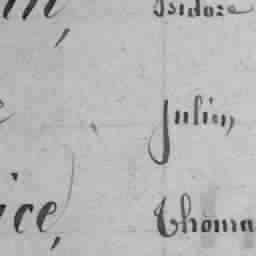 in, Isidore
Julien,
ice, Thoma